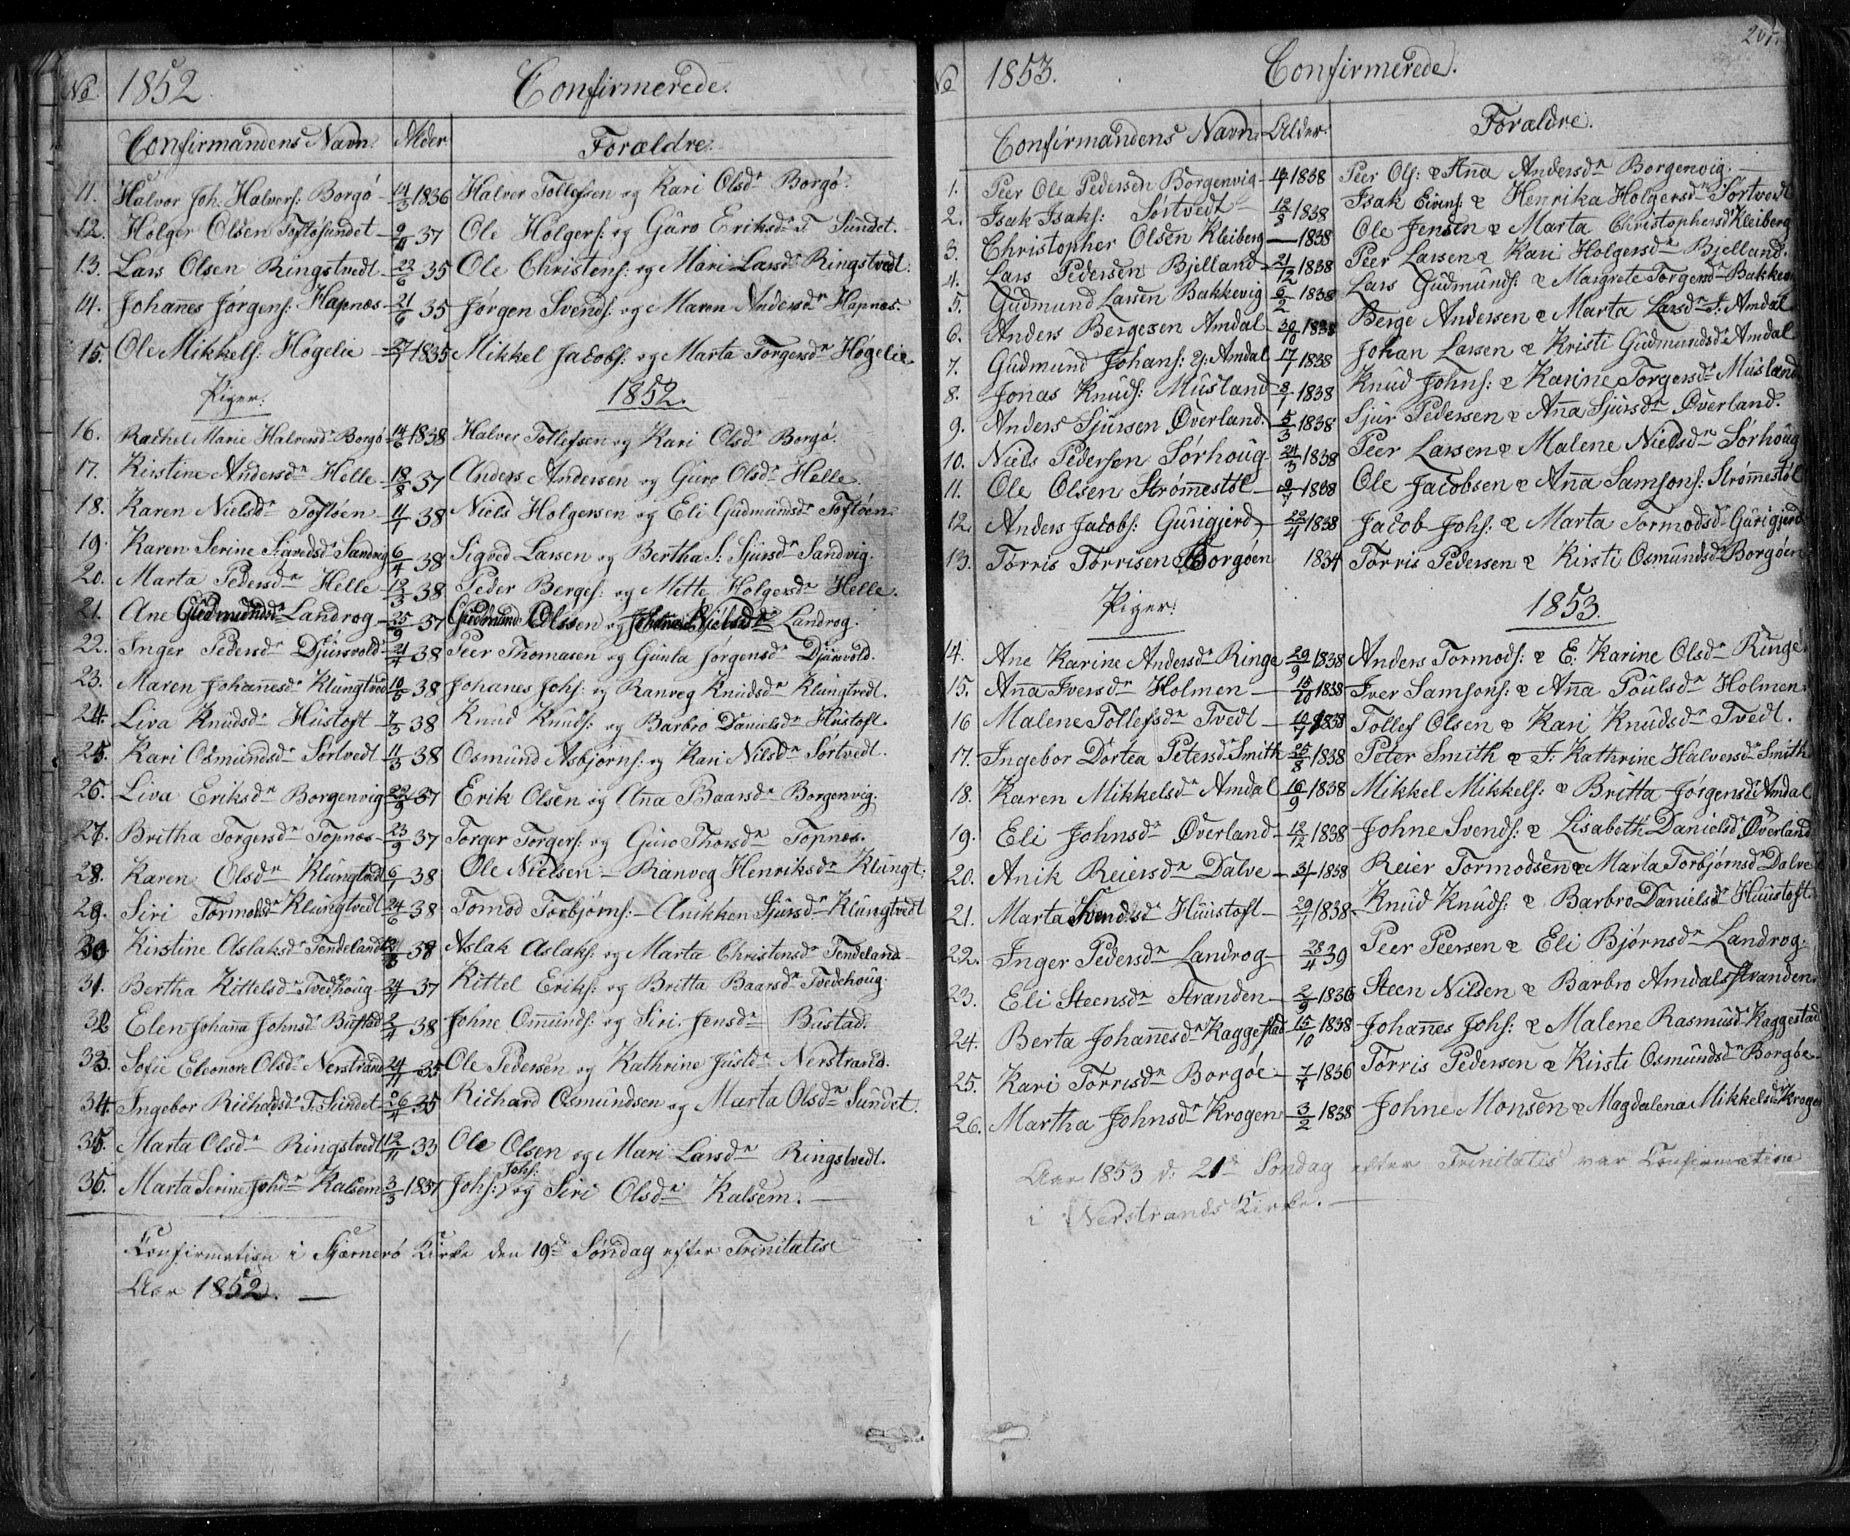 No 1852 Confirmerede.
Confirmandens Navn. Alder Forældre.
11. Halvor Joh. Halvers: Borgö 14/3 1836 Halver Tollefsen og Kari Olsdr Borgö.
12. Holger Olsen Toftösundet 9/4 37 Ole Holgers: og Guro Eriksdr T. Sundet.
13. Lars Olsen Ringstvedt 23/6 35 Ole Christens: og Mari Larsdr Ringstvedt.
14. Johanes Jörgens: Hapnæs 21/6 35 Jörgen Svends: og Maren Andersdr Hapnæs.
15. Ole Mikkels: Högelie 27/7 1835 Mikkel Jacobs: og Marta Torgersdr Högelie
Piger. 1852.
16. Rachel Marie Halversdr Borgö 14/6 1838 Halver Tollefsen og Kari Olsdr Borgö.
17. Kirstine Andersdr Helle 18/8 37 Anders Andersen og Guro Olsdr Helle.
18. Karen Nielsdr Toftöen 11/1 38 Niels Holgersen og Eli Gudmundsdr Toftöen
19. Karen Serine Sigvedsdr Sandvig 6/4 38 Sigved Larsen og Bertha S. Sjursdr Sandvig.
20. Marta Pedersdr Helle 12/3 38 Peder Berges: og Mette Holgersdr Helle.
21. Ane Gudmundsdr Landrog 25/9 37 Gudmund Olssen og Landrog.
22. Inger Pedersdr Djursvold 21/4 38 Peer Thomasen og Gunla Jörgensdr Djursvold.
23. Maren Johannesdr Klungtvedt 10/3 38 Johanes Johs: og Ranveg Knudsdr Klungtvedt.
24. Liva Knudsdr Hustoft 7/3 38 Knud Knuds: og Barbro Danielsdr Hustoft.
25. Kari Osmundsdr Sörtvedt 11/3 38 Osmund Asbjörns: og Kari Nilsdr Sörtvedt.
26. Liva Eriksdr Borgenvig 22/9 37 Erik Olsen og Anna Baarsdr Borgenvig.
27. Britha Torgersdr Topnæs 23/9 37 Torger Torgers: og Guro Thorsdr Topnæs.
28. Karen Olsdr Klungtvdt 6/1 38 Ole Nielsen - Ranveg Henriksdr Klungt:
29. Siri Tormodsdr Klungtvedt 24/2 38 Tomod Torbjörns: - Anikken Sjursdr Klungtvedt
30. Kirstine Aslaksdr Tendeland 38 Aslak Aslaks: og Marta Christensdr Tendeland
31. Bertha Kittelsdr Tvedhoug 24/11 37 Kittel Eriks: og Britta Baarsdr Tvedehoug.
32 Elen Johanna Johnsdr Bustad 2/4 38 Johne Omunds: og Siri Jensdr Bustad.
33. Sofie Eleonore Olsdr Nerstrand 24/11 35 Ole Pedersen og Kathrine Justdr Nerstrand.
34. Ingebor Richadsdr T. Sundet 26/4 35 Richard Osmundsen og Marta Olsdr Sundet.
35. Marta Olsdr Ringstvedt 12/11 33 Ole Olsen og Mari Larsdr Ringstvedt.
36. Marta Serine Johsdr Kalsem 3/3 1837 Johs: Johs: og Siri Olsdr Kalsem.
Confirmation i Sjærnerö Kirke den 19de Söndag efter Trinitatis
Aar 1852.
No 1853. Confirmerede.
Confirmandens Navn. Alder. Forældre.
1. Peer Ole Pedersen Borgenvig 14/7 1838 Peer Ols: & Anna Andersdr Borgenvig.
2. Isak Isaks: Sörtvedt 12/9 1838 Isak Eivens: & Henrika Holgersdr Sörtvedt
3. Christopher Olsen Kleiberg 1838 Ole Jensen & Marta Christophersdr Kleiberg
4. Lars Pedersen Bjelland 21/12 1838 Peer Larsen & Kari Holgersdr Bjelland.
5. Gudmund Larsen Bakkevig 6/2 1838 Lars Gudmunds: & Margrete Torgersdr Bakkev
6. Anders Bergesen Amdal 30/10 1838 Berge Andersen & Marta Larsdr I: Amdal
7. Gudmund Johans: Y: Amdal 17/7 1838 Johan Larsen & Kristi Gudmundsdr Amdal
8. Jonas Knuds: Musland 1838 Knud Johns: & Karine Torgersdr Musland
9. Anders Sjursen Överland. 5/3 1838 Sjur Pedersen & Anna Sjursdr Överland.
10. Niels Pedersen Sörhoug 24/3 1838 Peer Larsen & Malene Nielsdr Sörhoug
11. Ole Olsen Strömmestöl 1838 Ole Jacobsen & Anna Samsons: Strömmestöl
12. Anders Jacobs: Gurigjerd 22/4 1838 Jacob Johs: & Marta Tormodsdr Gurigjerd
13. Torris Torrisen Borgöen 1834 Torris Pedersen & Kirsti Osmundsdr Borgöen
Piger: 1853.
14. Ane Karine Andersdr Ringe 29/9 1838 Anders Tormods: & E: Karine Olsdr Ringe
15. Anna Iversdr Holmen 15/10 1838 Iver Samsons: & Anna Poulsdr Holmen.
16 Malene Tollefsdr Tvedt 1838 Tollef Olsen & Kari Knudsdr Tvedt.
17. Ingebor Dortea Petersdr Smith 25/8 1838 Peter Smith & J: Kathrine Halversdr Smith
18. Karen Mikkelsdr Amdal 16/9 1838 Mikkel Mikkels: & Britta Jörgensdr Amdal
19. Eli Johnsdr Överland 12/12 1838 Johne Svends: & Lisabeth Danielsdr Överland
20. Anik Reiersdr Dalve 1838 Reier Tormodsen & Marta Torbjörnsdr Dalve
21. Marta Svendsdr Huustoft 29/7 1838 Knud Knuds: & Barbro Danielsdr Huustoft
22. Inger Pedersdr Landrog 28/4 39 Peer Peersen & Eli Björnsdr Landrog.
23. Eli Steensdr Stranden 2/9 1836 Steen Nilsen & Barbro Amdalsstranden
24. Berta Johannesdr Kaggestad 15/10 1838 Johannes Johs: & Malene Rasmusdr Kaggestad
25. Kari Torrisdr Borgöe 7/7 1836 Torris Pedersen & Kirsti Osmundsdr Borgöe
26. Martha Johnsdr Krogen 3/2 1838 Johne Monsen & Magdalena Mikkelsdr Kroge
Aar 1853 d: 21de Söndag efter Trinitatis var Confirmation
i Nerstrands Kirke.